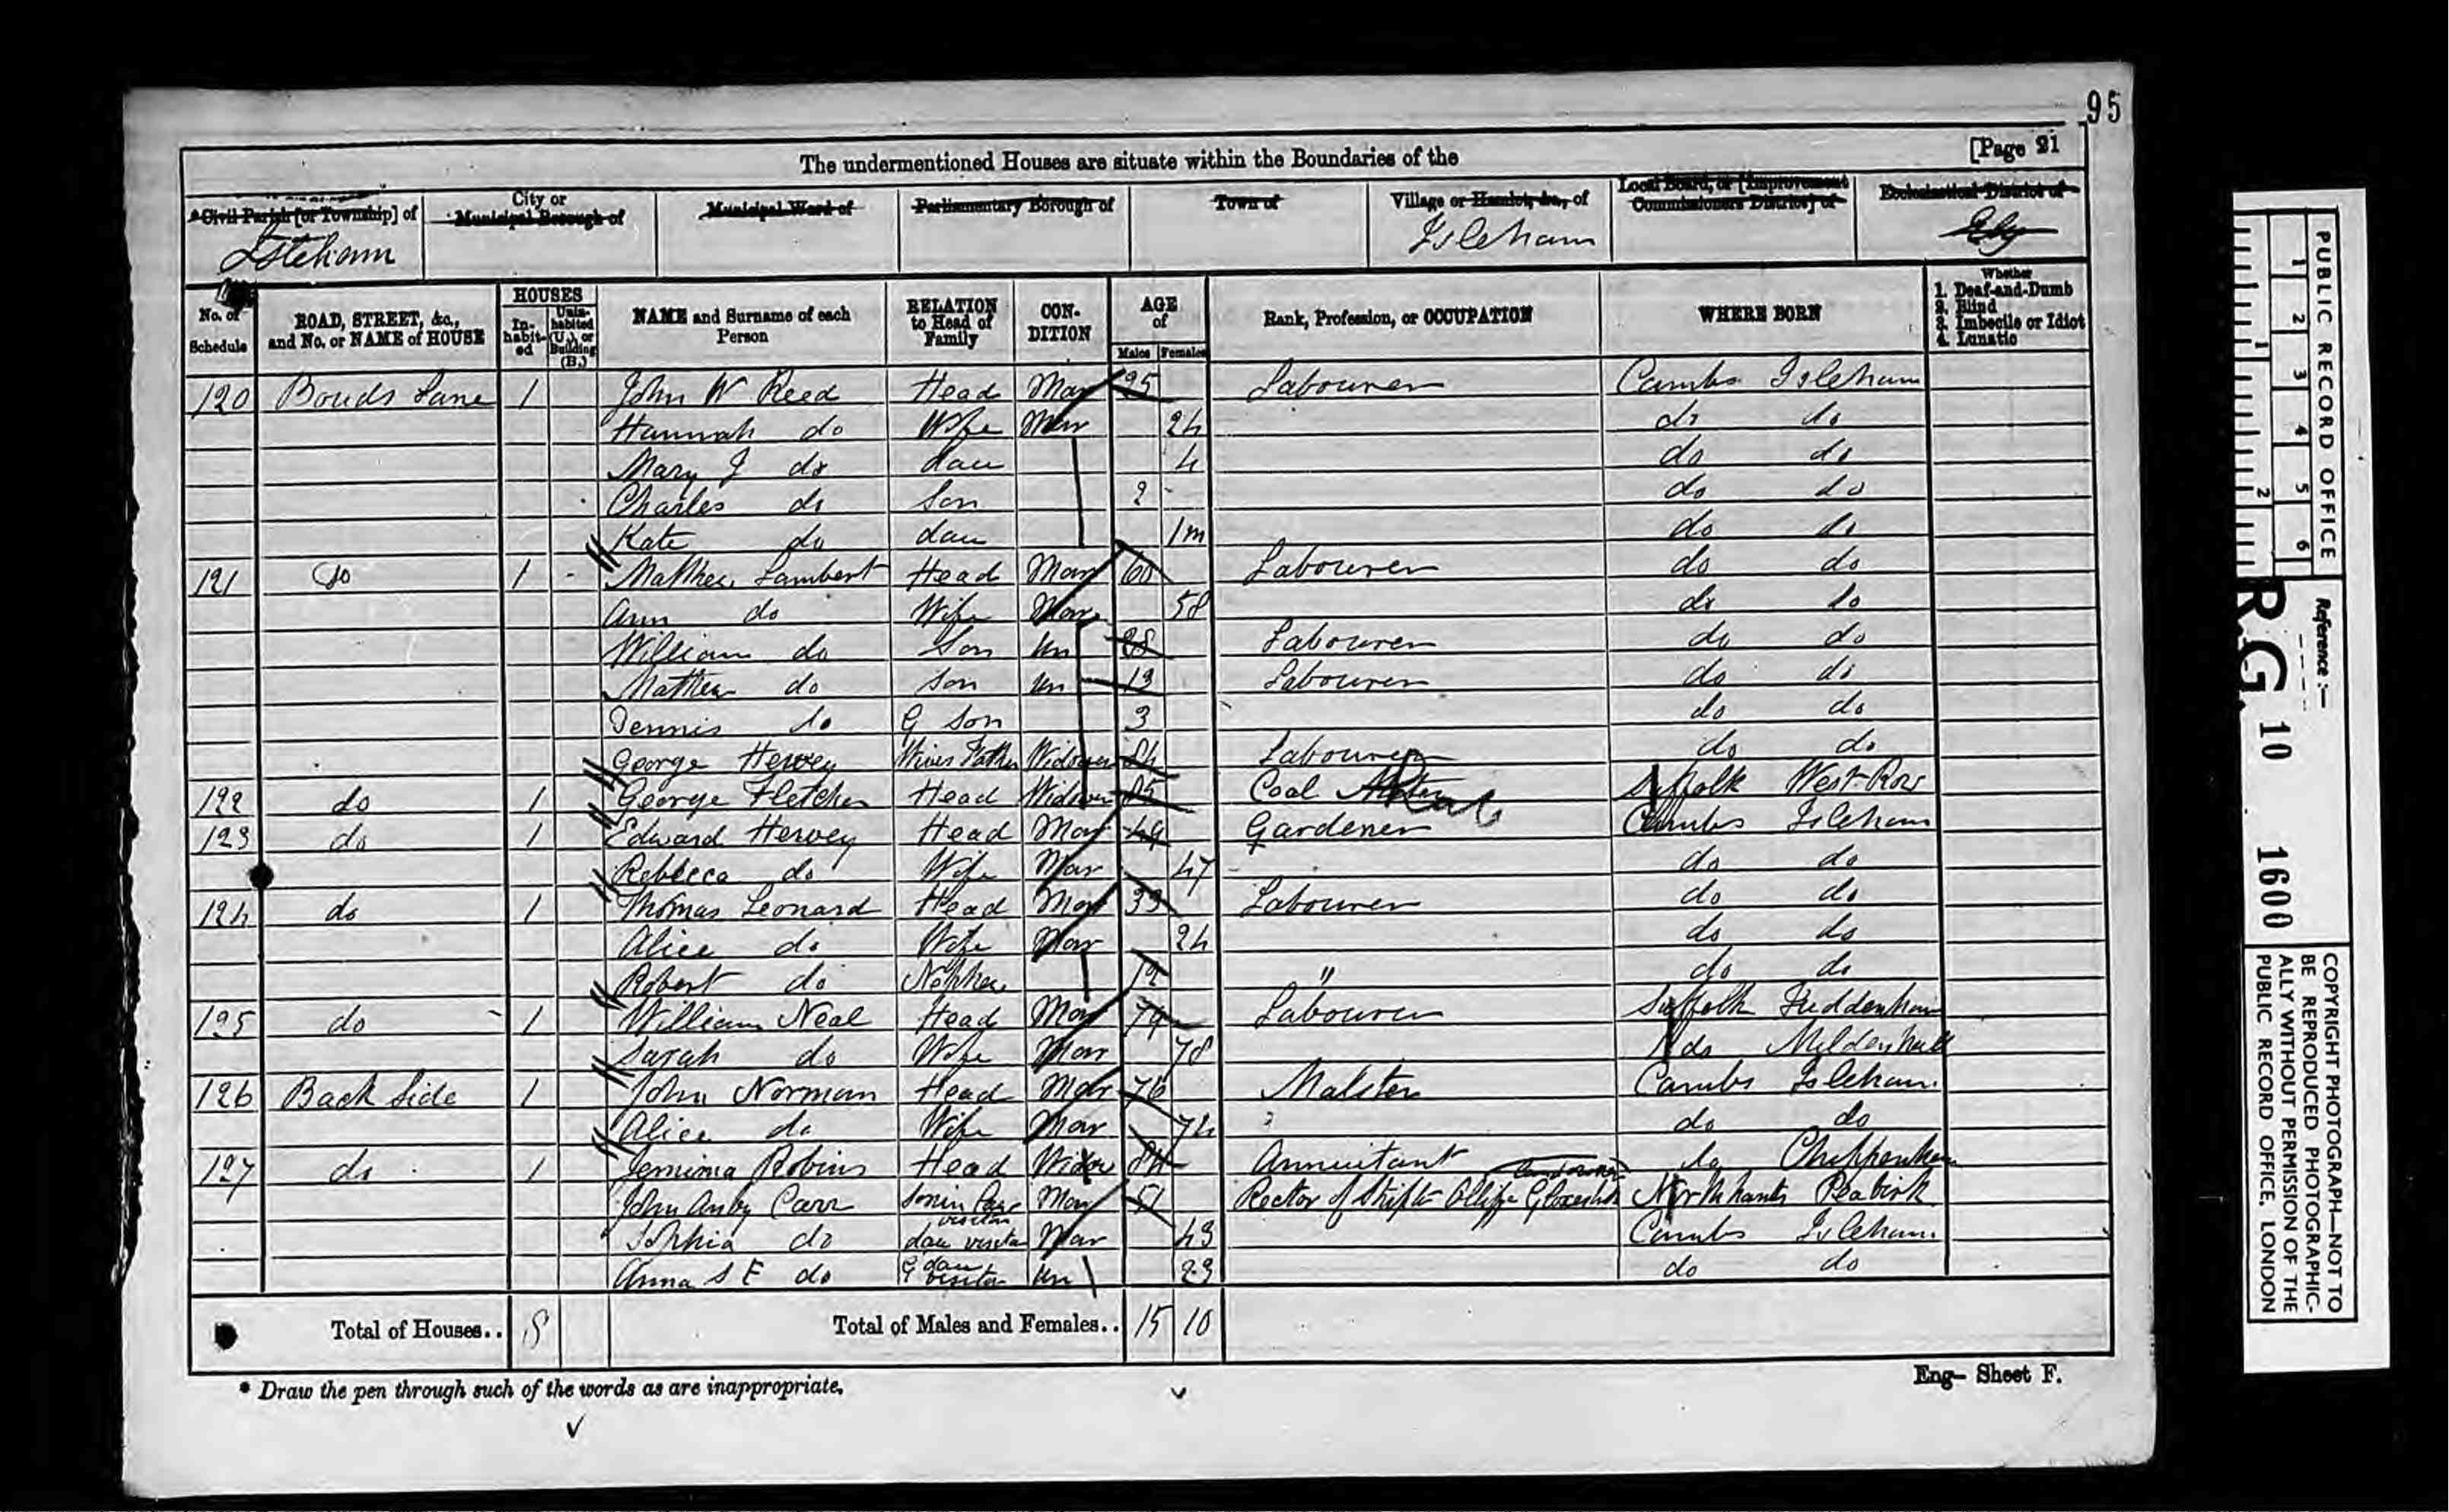 95
[Page 21
The undermentioned Houses are situate within the Boundaries of the
*Civil Parish [or Township] of
City or Municipal Borough of
Municipal Ward of
Parliamentary Borough of
Town of
Village or Hamlet, &c., of
Local Board, or [Improvement Commissioners District] of
Ecclesiastical District of
Isleham
Isleham
Ely
No. of Schedule
ROAD, STREET, &c., and No. or NAME of HOUSE
HOUSES
In-habit-ed
Unin-habited (U.), or Building (B.)
NAME and Surname of each Person
RELATION to Head of Family
CON-DITION
AGE of
Males Females
Rank, Profession, or OCCUPATION
WHERE BORN
Whether
1. Deaf-and-Dumb
2. Blind
3. Imbecile or Idiot
4. Lunatic
120 Bonds Lane 1 John W Reed Head Mar 25 Labourer Cambs Isleham
Hannah do Wife Mar 24 do do
Mary J do dau 4 do do
Charles do Son 2 do do
Kate do dau 1m do do
121 Do 1 Mathew Lambert Head Mar 60 Labourer do do
Ann do Wife Mar 58 do do
William do Son Un 28 Labourer do do
Mathew do Son Un 19 Labourer do do
Dennis do G Son 3 do do
George Hervey Wives Father Widower 84 Labourer do do
122 do 1 George Fletcher Head Widower 85 Coal Suffolk West Row
123 do 1 Edward Hervey Head Mar 49 Gardener Cambs Isleham
Rebecca do Wife Mar 47 do do
124 do 1 Thomas Leonard Head Mar 33 Labourer do do
Alice do Wife Mar 24 do do
Robert do Nephew 12 " do do
125 do 1 William Neal Head Mar 79 Labourer Suffolk
Sarah do Wife Mar 78 do Mildenhall
126 Back Side 1 John Norman Head Mar 76 Malster Cambs Isleham
Alice do Wife Mar 74 do do
127 do 1 Jemima Robins Head Widow 84 Annuitant do Chippenham
John Anby Carr Son in Law visitor Mar 51 Rector of Northants Peakirk
Sophia do dau visitor Mar 49 Cambs Isleham
Anna S E do G dau visitor Un 23 do do
Total of Houses.. 8
Total of Males and Females.. 15 10
* Draw the pen through such of the words as are inappropriate.
Eng- Sheet F.
PUBLIC RECORD OFFICE
1 2 3 4 5 6
1 2
Reference:-
RG 10 1600
COPYRIGHT PHOTOGRAPH—NOT TO BE REPRODUCED PHOTOGRAPHIC-ALLY WITHOUT PERMISSION OF THE PUBLIC RECORD OFFICE, LONDON